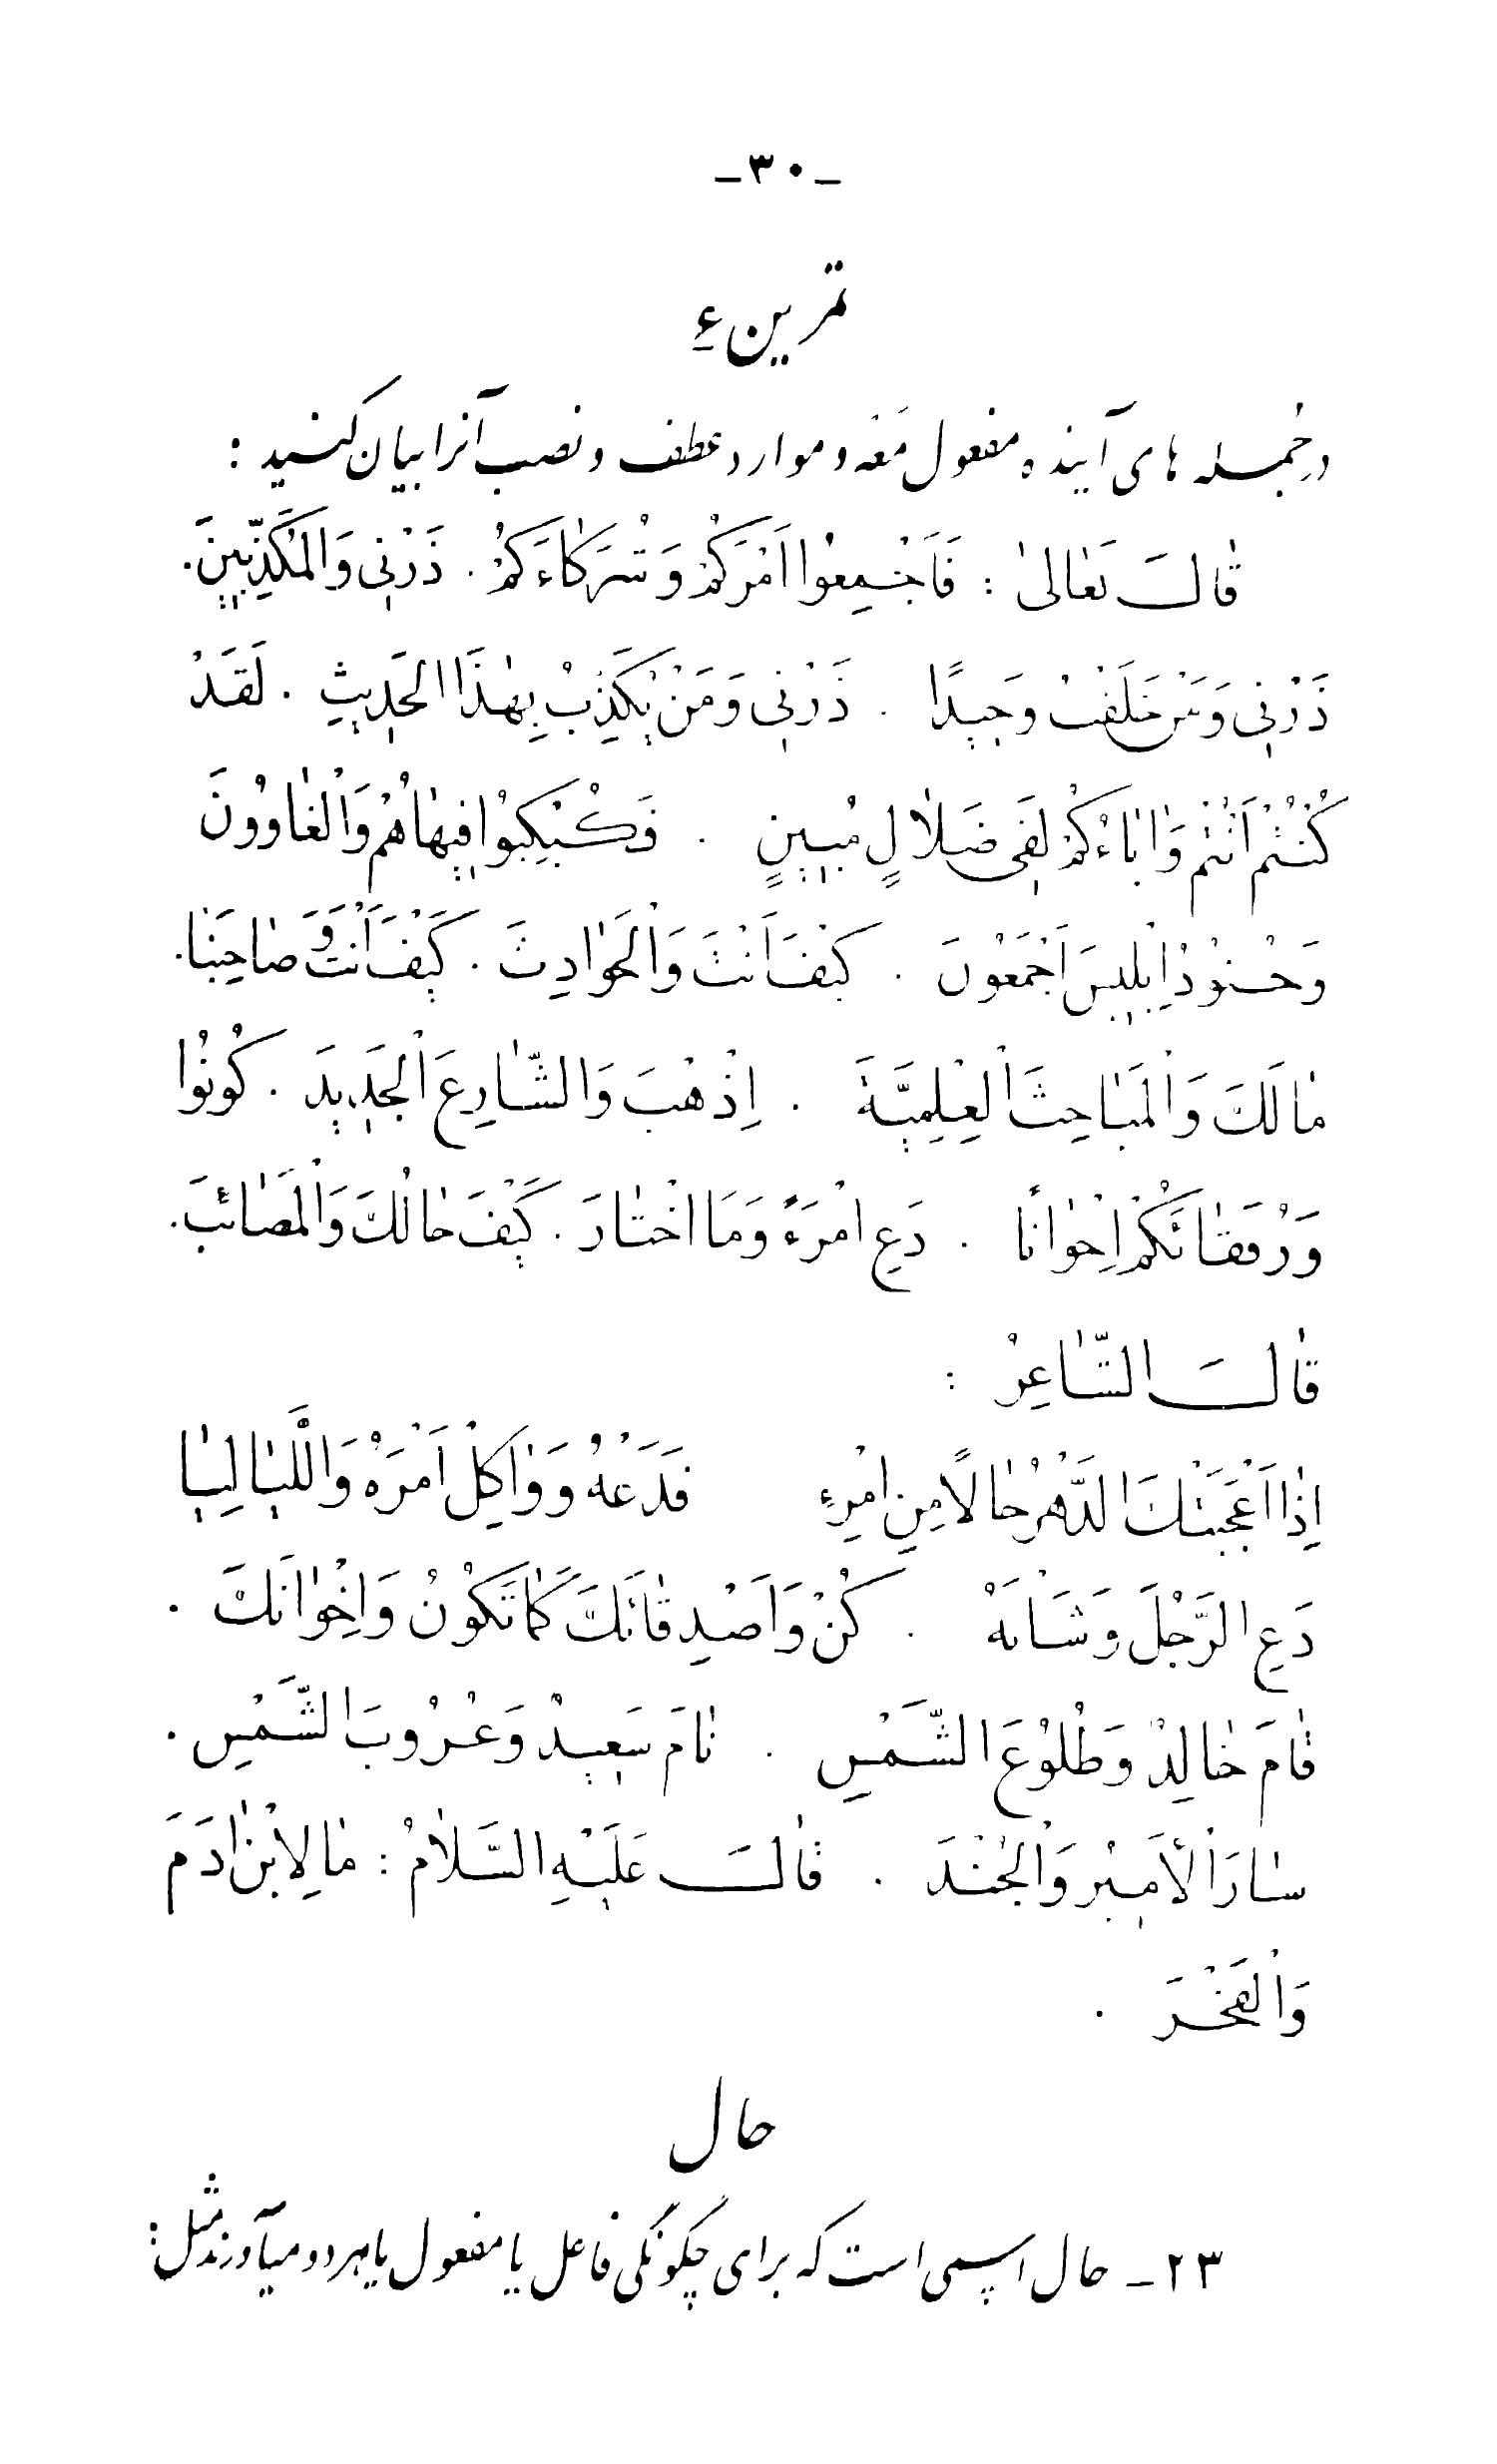 ـ ٣٠ ـ
تمرین ٤
در جمله های آینده مفعول مَعَه و موارد عطف و نصب آنرا بیان کنید :
قٰالَ تَعٰالىٰ : فَاَجْمِعُوا اَمْرَكُمْ وَ شُرَكٰاءَكُمْ . ذَرْنِي وَ الْمُكَذِّبِينَ .
ذَرْنِي وَ مَنْ خَلَقْتُ وَحِيدًا . ذَرْنِي وَ مَنْ يُكَذِّبُ بِهٰذَا الْحَدِيثِ . لَقَدْ
كُنْتُمْ اَنْتُمْ وَ اٰبٰاءُكُمْ لَفِي ضَلاٰلٍ مُبِينٍ . فَكُبْكِبُوا فِيهٰا هُمْ وَ الْغٰاوُونَ
وَ جُنُودُ اِبْلِيسَ اَجْمَعُونَ . كَيْفَ اَنْتَ وَ الْحَوٰادِثَ . كَيْفَ اَنْتَ وَ صٰاحِبَنٰا .
مٰا لَكَ وَ الْمَبٰاحِثَ الْعِلْمِيَّةَ . اِذْهَبَ وَ الشّٰارِعَ الْجَدِيدَ . كُونُوا
وَ رُفَقٰائَكُمْ اِخْوٰانًا . دَعِ امْرَءً وَ مَا اخْتٰارَ . كَيْفَ حٰالُكَ وَ الْمَصٰائِبَ .
قٰالَ الشّٰاعِرُ :
اِذٰا اَعْجَبَتْكَ الدَّهْرُ حٰالًا مِنِ امْرِءٍ فَدَعْهُ وَ وٰاكِلْ اَمْرَهُ وَ اللَّيٰالِيٰا
دَعِ الرَّجُلَ وَ شَأْنَهُ . كُنْ وَ اَصْدِقٰائَكَ كَمٰا تَكُونُ وَ اِخْوٰانَكَ .
قٰامَ خٰالِدٌ وَ طُلُوعَ الشَّمْسِ . نٰامَ سَعِيدٌ وَ غُرُوبَ الشَّمْسِ .
سٰارَ الْأَمِيرُ وَ الْجُنْدَ . قٰالَ عَلَيْهِ السَّلاٰمُ : مٰا لِابْنِ اٰدَمَ
وَ الْفَخْرَ .
حال
٢٣ ـ حال اسمی است که برای چگونگی فاعل یا مفعول یا هر دو میآورند مثل :